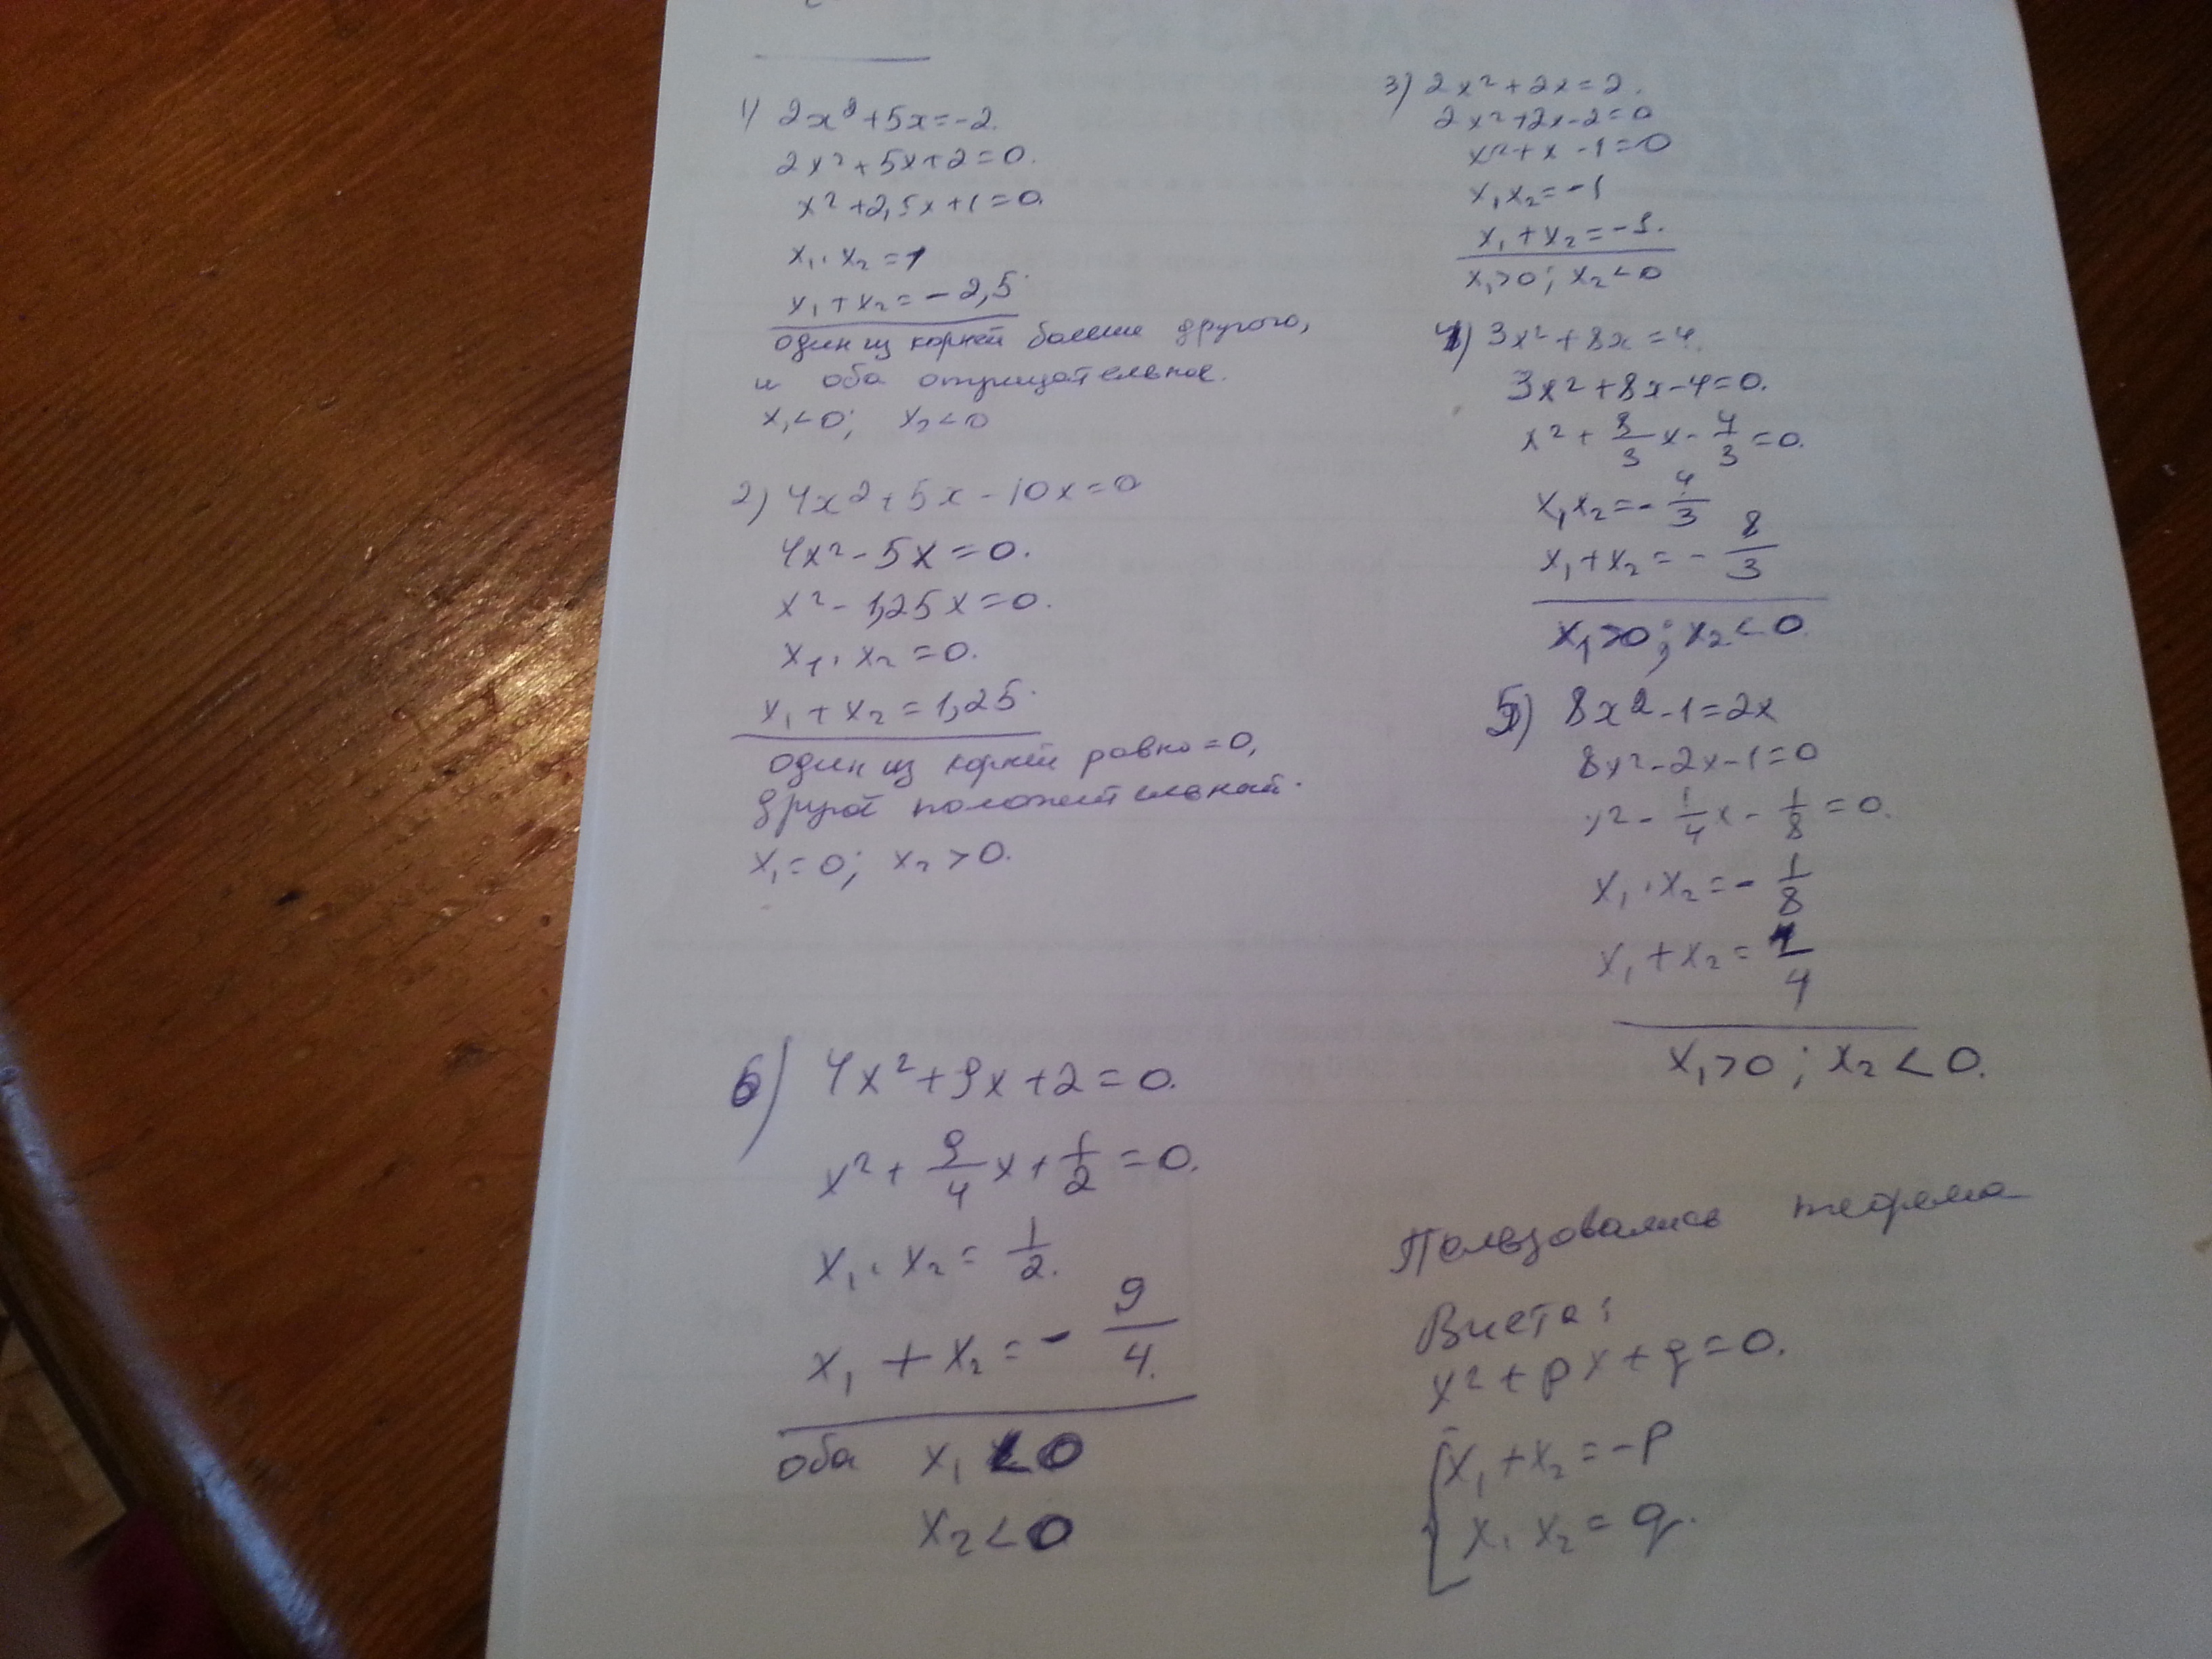 1) 2x²+5x=-2.
2x²+5x+2=0.
x²+2,5x+1=0.
x₁·x₂=1
x₁+x₂=-2,5
один из корней больше другого,
и оба отрицательное.
x₁<0; x₂<0
2) 4x²+5x-10x=0
4x²-5x=0.
x²-1,25x=0.
x₁·x₂=0.
x₁+x₂=1,25
один из корней равно=0,
другой положительный.
x₁=0; x₂>0.
3) 2x²+2x=2.
2x²+2x-2=0
x²+x-1=0
x₁x₂=-1
x₁+x₂=-1.
x₁>0; x₂<0
4) 3x²+8x=4.
3x²+8x-4=0.
x²+8/3x-4/3=0.
x₁x₂=-4/3
x₁+x₂=-8/3
x₁>0; x₂<0
5) 8x²-1=2x
8x²-2x-1=0
x²-1/4x-1/8=0.
x₁·x₂=-1/8
x₁+x₂=1/4
x₁>0; x₂<0.
6) 4x²+9x+2=0.
x²+9/4x+1/2=0.
x₁·x₂=1/2.
x₁+x₂=-9/4.
оба x₁<0
x₂<0
Пользовались теорема
Виета:
x²+px+q=0.
{x₁+x₂=-p
x₁x₂=q.